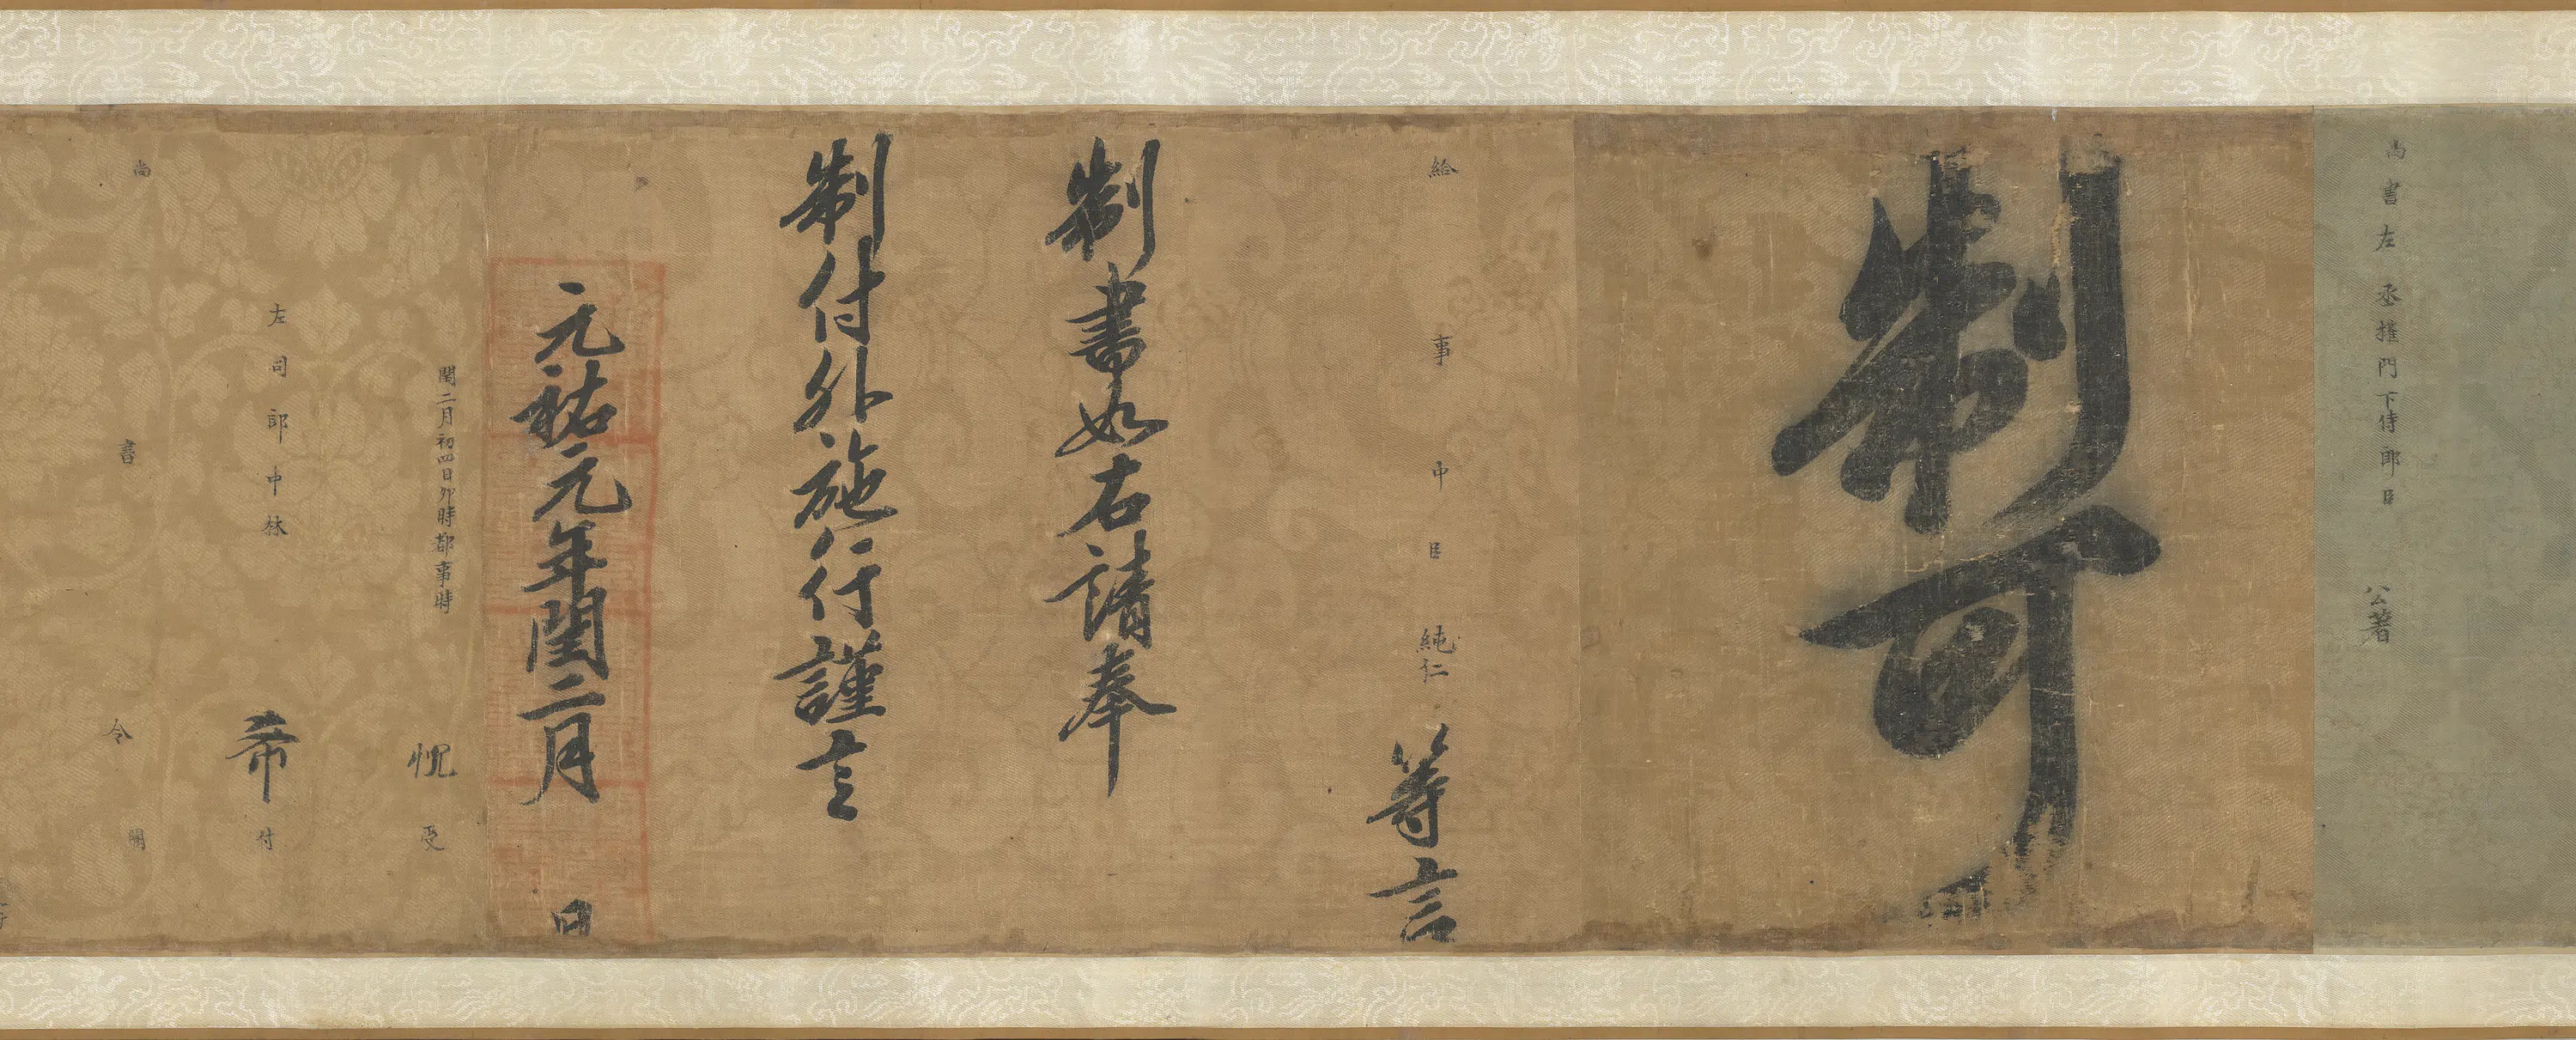 尚書左丞權門下侍郎臣 公著
制可
給事中臣 純仁 等言
制書如右請奉
制付外施行謹言
元祐元年閏二月 日
閏二月初四日卯時都事時 忱 受
左司郎中林 希 付
尚書令 闕